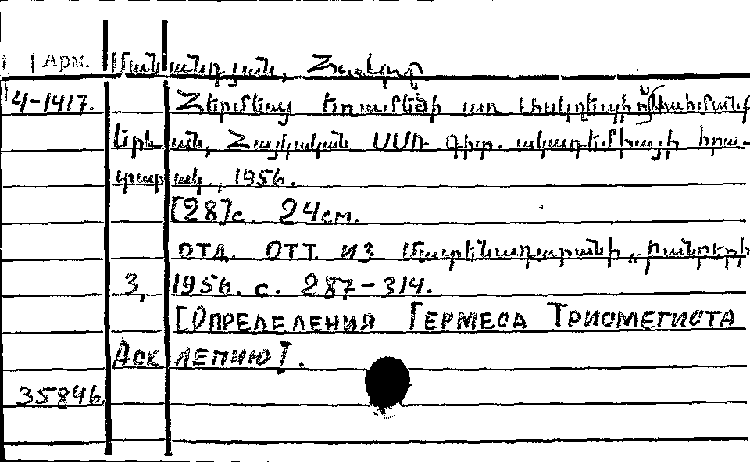 Арм. Մանանդյան, Հակոբ
4-1417. Հերմեայ Եռամեծի առ Ասկղեպիոս սահմանք
Երևան, Հայկական ՍՍՌ գիտ. ակադեմիայի հրա-
տարակ., 1956.
[28]с. 24см.
отд. отт. из Մատենադարանի „Բանբերի
3, 1956. с. 287-314.
[Определения Гермеса Трисмегиста
Асклепию].
35846.